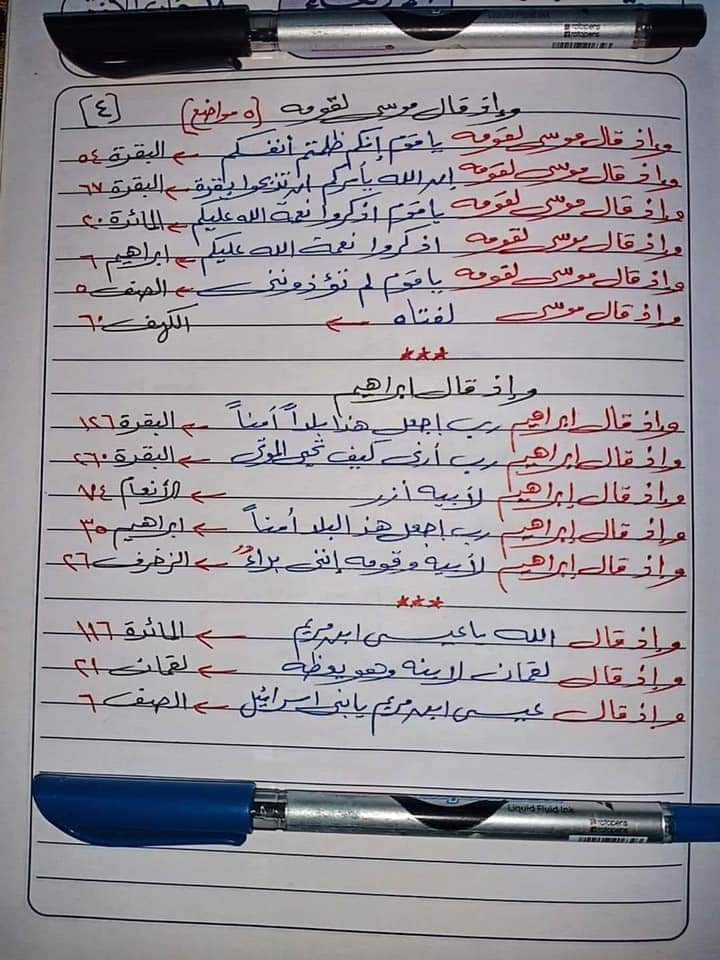 rotopens
rotopens
وإذ قال موسى لقومه (٥ مواضع) (٤)
وإذ قال موسى لقومه يا قوم إنكم ظلمتم أنفسكم ← البقرة ٥٤
وإذ قال موسى لقومه إن الله يأمركم أن تذبحوا بقرة ← البقرة ٦٧
وإذ قال موسى لقومه يا قوم اذكروا نعمة الله عليكم ← المائدة ٢٠
وإذ قال موسى لقومه اذكروا نعمة الله عليكم ← ابراهيم ٦
وإذ قال موسى لقومه يا قوم لم تؤذونني ← الصف ٥
وإذ قال موسى لفتاه ← الكهف ٦٠
***
وإذ قال ابراهيم
وإذ قال إبراهيم رب إجعل هذا بلداً آمناً ← البقرة ١٢٦
وإذ قال إبراهيم رب أرنى كيف تحي الموتى ← البقرة ٢٦٠
وإذ قال إبراهيم لأبيه أزر ← الأنعام ٧٤
وإذ قال إبراهيم رب إجعل هذ البلد آمناً ← ابراهيم ٣٥
وإذ قال إبراهيم لأبيه وقومه إننى براءٌ ← الزخرف ٢٦
***
وإذ قال الله يا عيسى ابن مريم ← المائدة ١١٦
وإذ قال لقمان لابنه وهو يعظه ← لقمان ٢١
وإذ قال عيسى ابن مريم يا بنى اسرائيل ← الصف ٦
Liquid Fluid Ink
rotopens
rotopens